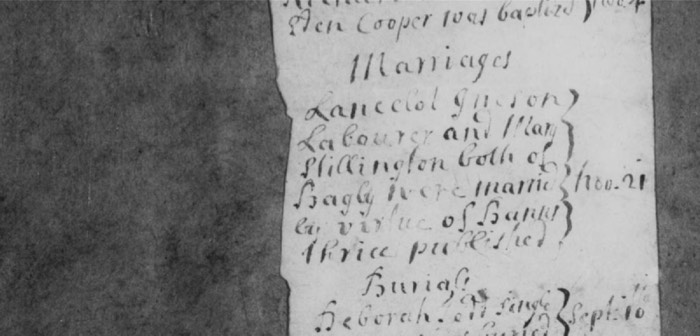 Cooper was baptizd
Marriages
Lancelot
Labourer and Mary
Stillington both of
Hagly were married Nov. 21
by virtue of Banns
thrice published
Burials
Deborah Septr. 16